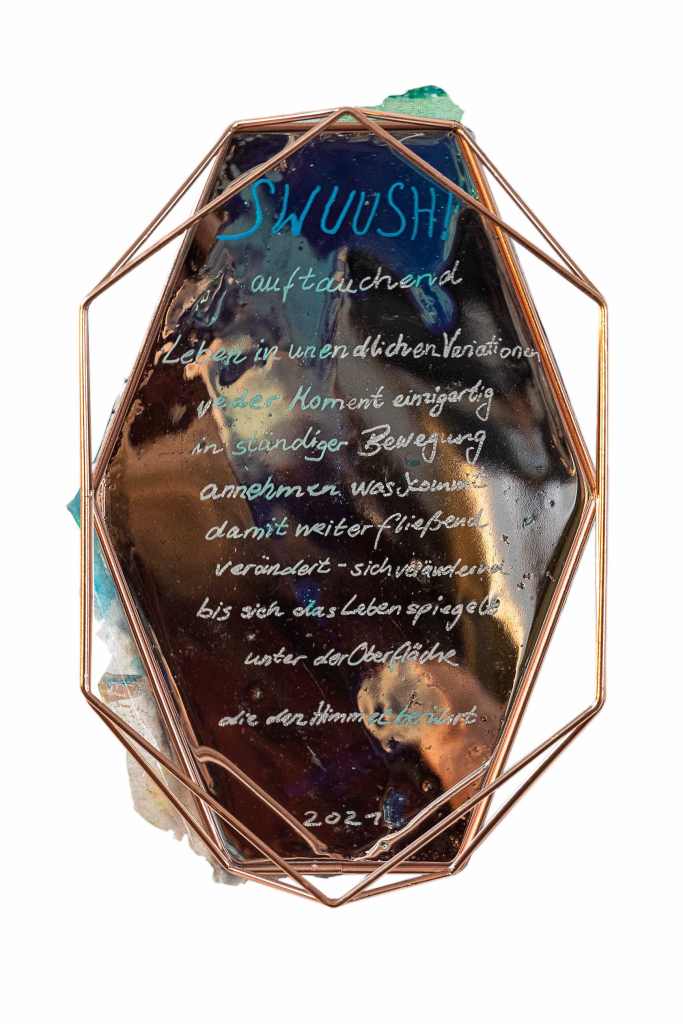 SWUUSH!
auftauchend
Leben in unendlichen Variationen
jeder Moment einzigartig
in ständiger Bewegung
annehmen was kommt
damit weiter fließend
verändert - sich verändernd
bis sich das Leben spiegelt
unter der Oberfläche
die den Himmel berührt
2021